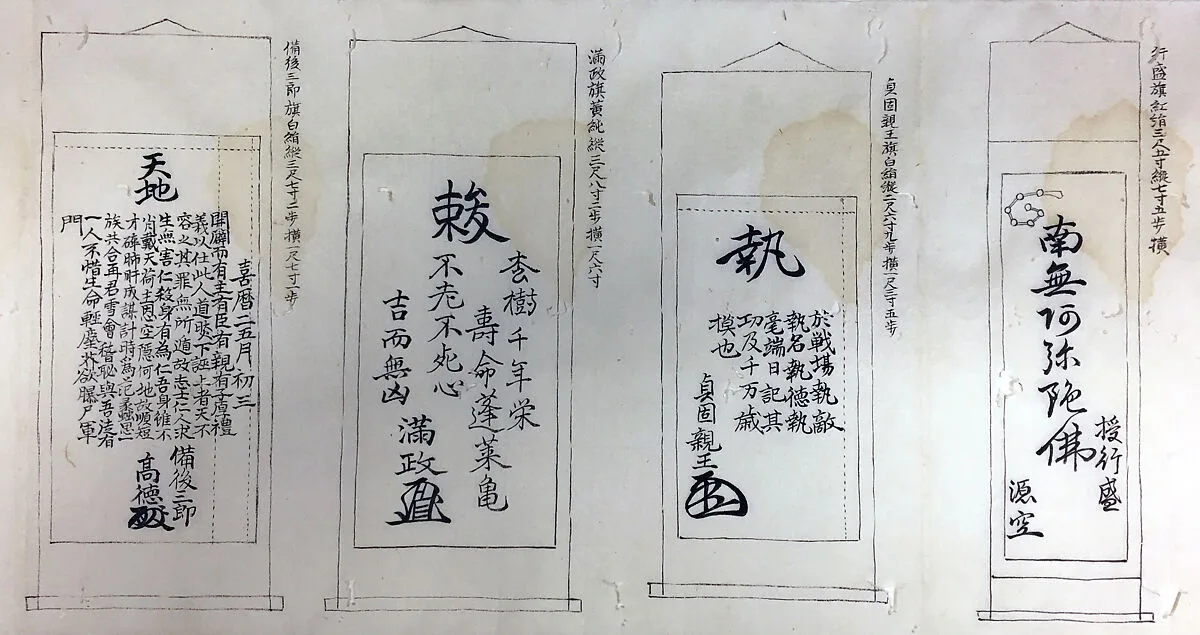 行盛旗紅絹三尺五寸縦七寸五歩横
南無阿弥陀佛
授行盛
源空
貞固親王旗白絹縦二尺六寸九歩横一尺三寸五歩
執
於戦場執敵
執名執德執
毫端日記其
功及千万歳
摸也
貞固親王
滿政旗黄純縦三尺八寸二歩横一尺六寸
杏樹千年栄
壽命蓬莱亀
不老不死心
吉而無凶
滿政
備後三郎旗白絹縦三尺七寸二歩横一尺七寸一歩
天地
喜暦二五月初三
開闢而有主有臣有親有子
義以仕此人道
下誣上者天不
容之其罪無所遁故志士仁人求
生無害仁殺身有為仁吾身雖不
肖戴天荷主恩空
何地故順短
才碎肺肝成謀計時為
思一
族共合再君雪會稽恥與吾
者
一人不惜生命軽塵芥欲曝尸軍
門
備後三郎
高德